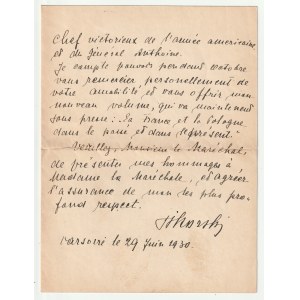 Chef victorieux de l'armée américaine
et du Général Anthoine.
Je compte pouvoir pendant octobre
vous remercier personnellement de
votre amabilité et vous offrir mon
nouveau volume, qui va maintenant
sous presse: "La France et la Pologne
dans le passé et dans le présent".
Veuillez, Monsieur le Maréchal,
de présenter mes hommages à
Madame la Maréchale, et agréer
l'assurance de mon plus pro-
fond respect.
Sikorski
Varsovie le 29 Juin 1930.